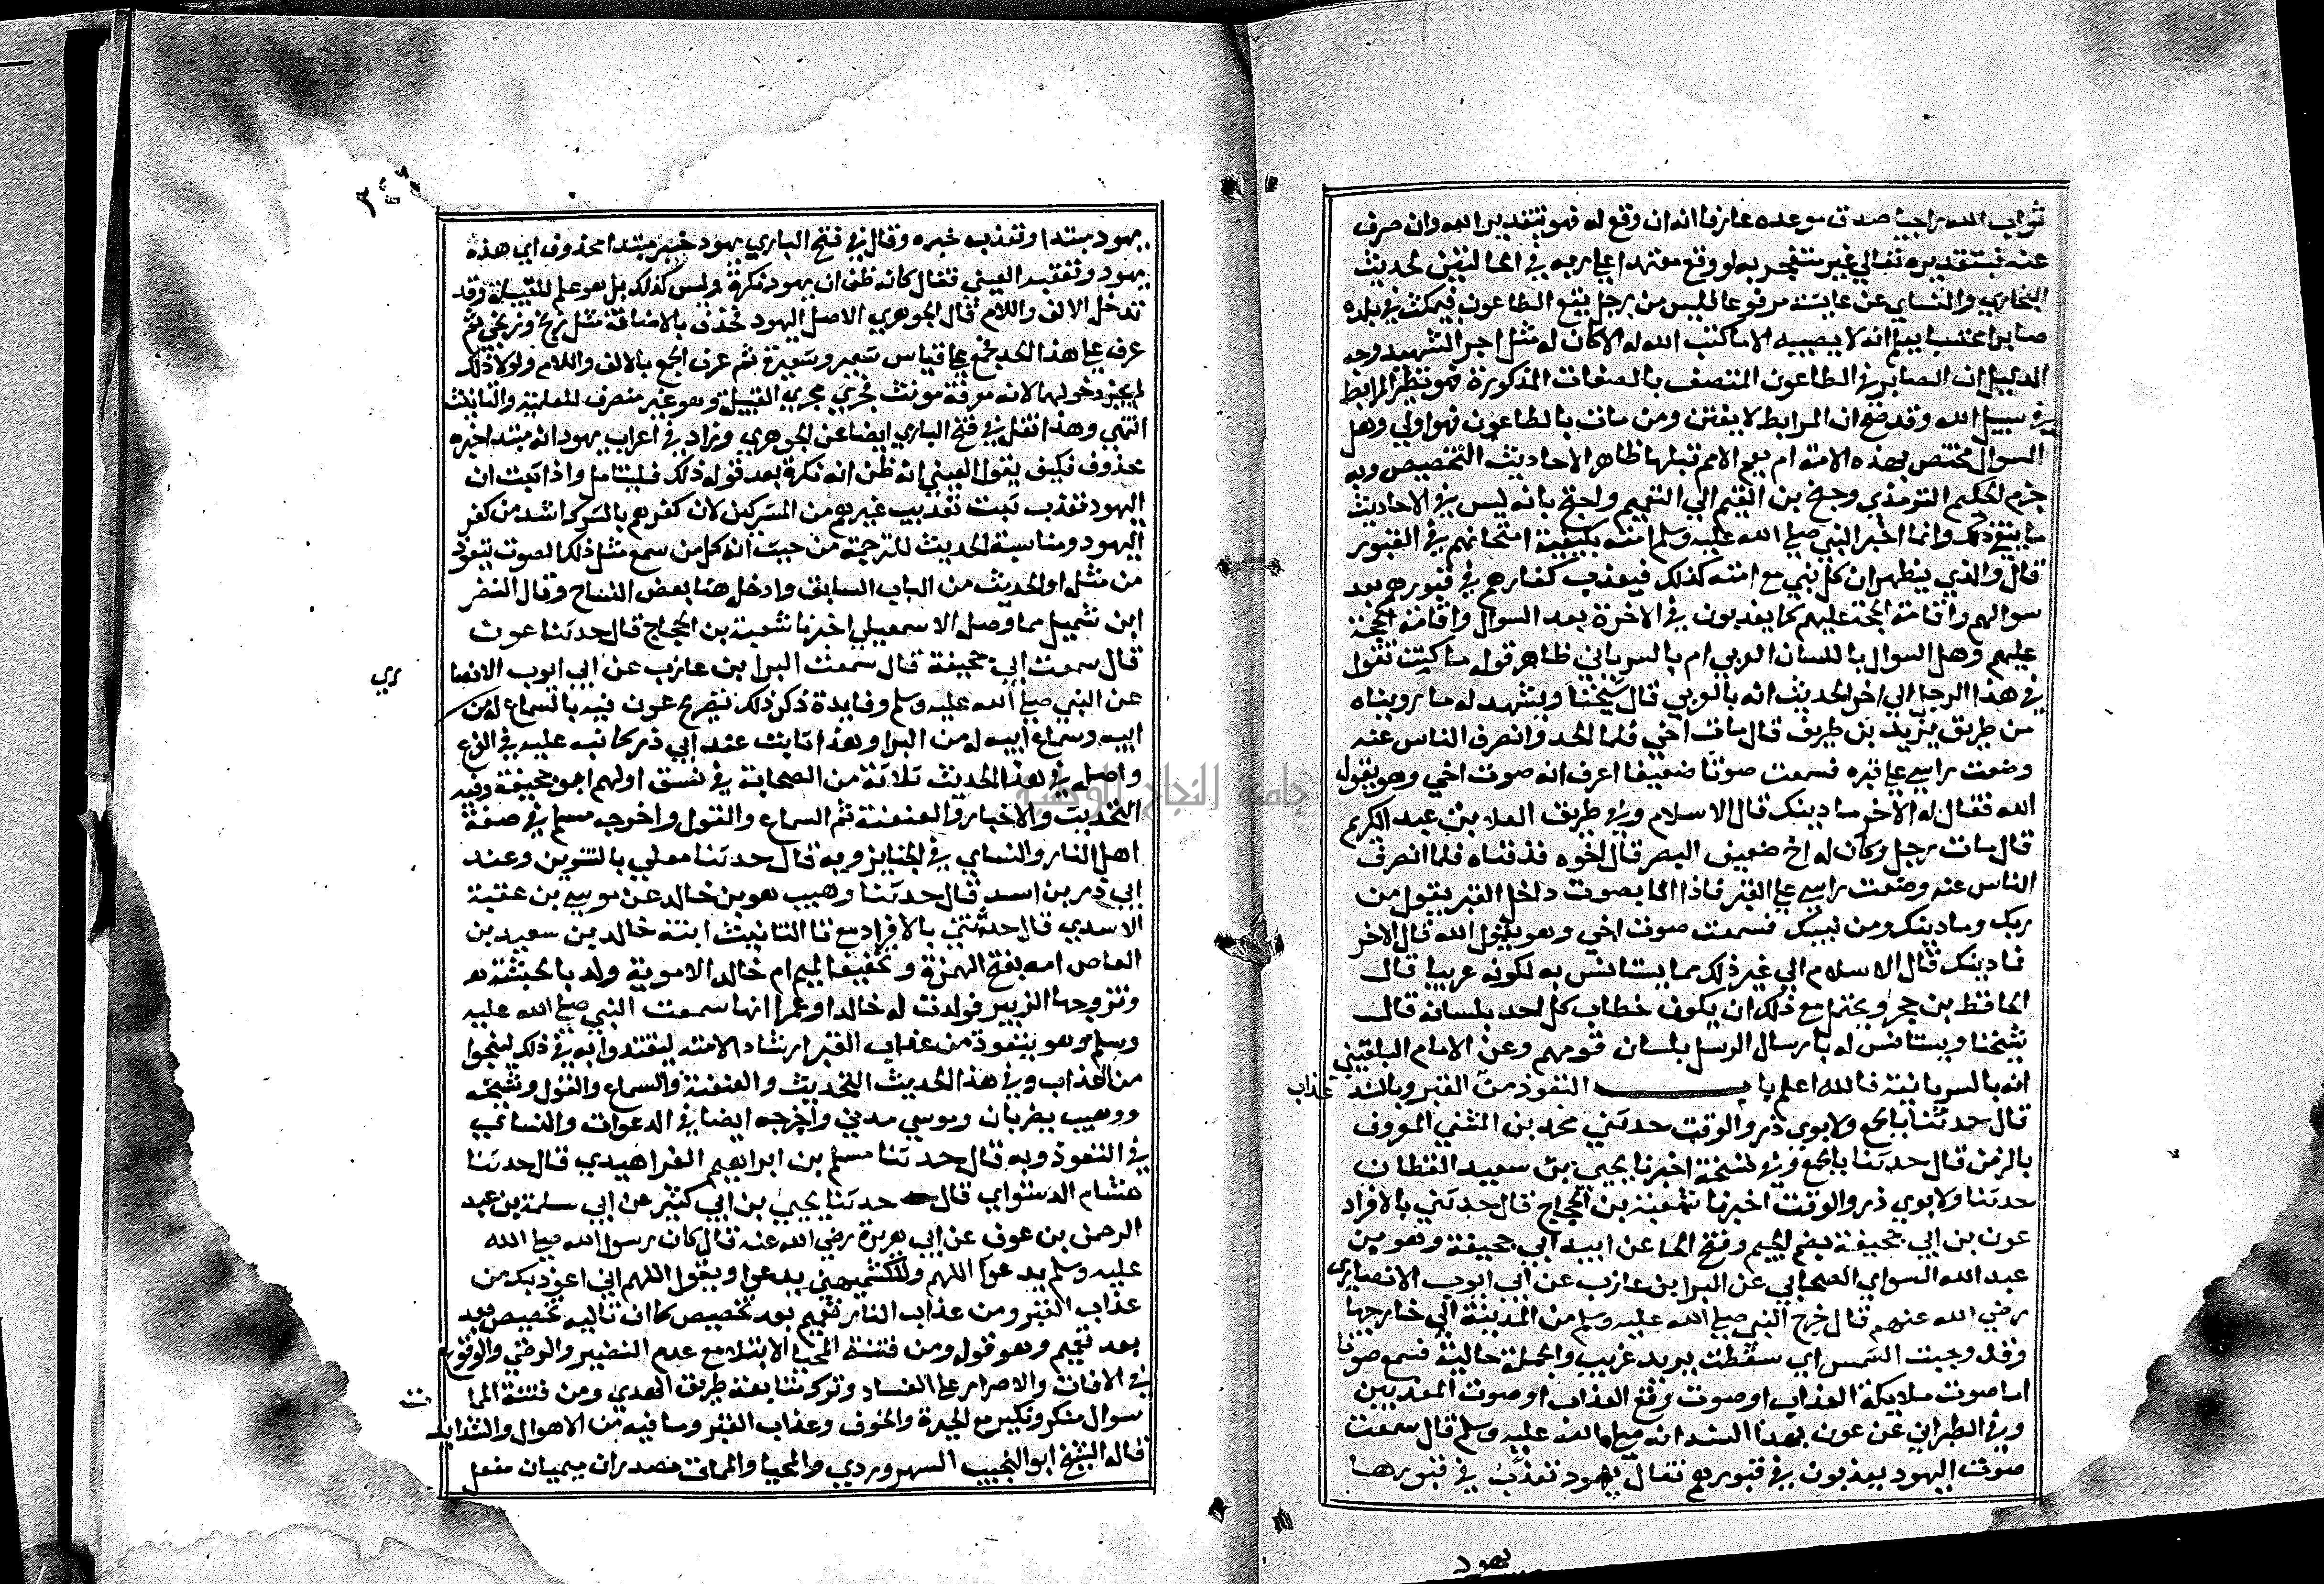 ثواب الله راجيا صدق موعده عارفا انه ان وقع له فهو بتقدير الله وان صرف
عنه فبتقديره تعالي غير متضجر به لو وقع معتمدا علي ربه في الحالتين لحديث
البخاري والنساي عن عايشة مرفوعا فليس من رجل يقع الطاعون فيمكث في بلده
صابرا محتسبا يعلم انه لا يصيبه الا ما كتب الله له الا كان له مثل اجر الشهيد وجه
الدليل ان الصابر في الطاعون المتصف بالصفات المذكورة فهو نظير المرابط
في سبيل الله وقد صح ان المرابط لا يفتن ومن مات بالطاعون فهو اولي وهل
السوال مختص بهذه الامة ام يعم الامم قبلها ظاهر الاحاديث التخصيص وبه
جزم الحكيم الترمذي وجنح بن القيم الي التعميم واحتج بانه ليس في الاحاديث
ما ينفي ذلك وانما اخبر النبي صلي الله عليه وسلم امته بكيفية امتحانهم في القبور
قال والذي يظهر ان كل نبي مع امته كذلك فيعذب كفارهم في قبورهم بعد
سوالهم واقامة الحجة عليهم كما يعذبون في الاخرة بعد السوال واقامة الحجة
عليهم وهل السوال باللسان العربي ام بالسرياني ظاهر قوله ما كنت تقول
في هذا الرجل الي اخر الحديث انه بالعربي قال شيخنا ويشهد له ما رويناه
من طريق يزيد بن طريف قال مات اخي فلما الحد وانصرف الناس عنه
وضعت راسي علي قبره فسمعت صوتا ضعيفا اعرف انه صوت اخي وهو يقول
الله فقال له الاخر ما دينك قال الاسلام وفي طريق العلا بن عبد الكريم
قال مات رجل وكان له اخ ضعيف البصر قال اخوه فدفناه فلما انصرف
الناس عنه وضعت راسي علي القبر فاذا انا بصوت داخل القبر يقول من
ربك وما دينك ومن نبيك فسمعت صوت اخي وهو يقول الله قال الاخر
فما دينك قال الاسلام الي غير ذلك مما يستانس به لكونه عربيا قال
الحافظ بن حجر ويحتمل مع ذلك ان يكون خطاب كل احد بلسانه قال
شيخنا ويستانس له بارسال الرسل بلسان قومهم وعن الامام البلقيني
انه بالسريانية فالله اعلم باب التعوذ من القبر وبالسند
عذاب
قال حدثنا بالجمع ولابوي ذر والوقت حدثني محمد بن المثني المعروف
بالزمن قال حدثنا بالجمع وفي نسخة اخبرنا يحيي بن سعيد القطان
حدثنا ولابوي ذر والوقت اخبرنا شعبة بن الحجاج قال حدثني بالافراد
عون بن ابي جحيفة بضم الجيم وفتح الحا عن ابيه ابي جحيفة وهو بن
عبد الله السواي الصحابي عن البرا بن عازب عن ابي ايوب الانصاري
رضي الله عنهم قال خرج النبي صلي الله عليه وسلم من المدينة الي خارجها
وقد وجبت الشمس اي سقطت يريد غربت والجملة حالية فسمع صوتا
اما صوت ملايكة العذاب او صوت وقع العذاب او صوت المعذبين
وفي الطبراني عن عون بهذا السند انه صلي الله عليه وسلم قال سمعت
صوت اليهود يعذبون في قبورهم فقال يهود تعذب في قبورها
يهود
يهود مبتدا وتعذب خبره وقال في فتح الباري يهود خبر مبتدا محذوف اي هذه
يهود وتعقبه العيني فقال كانه ظن ان يهود نكرة وليس كذلك بل هو علم للقبيلة وقد
تدخل الالف واللام قال الجوهري الاصل اليهود فحذف بالاضافة مثل زنج وزنجي ثم
عرف علي هذا الحد فجمع علي قياس شعير وشعيرة ثم عرف الجمع بالالف واللام ولولا ذلك
لم يجز دخولهما لانه معرفة مونث فجري مجري القبيلة وهو غير منصرف للعلمية والتانيث
انتهي وهذا نقل في فتح الباري ايضا عن الجوهري وزاد في اعراب يهود انه مبتدا خبره
محذوف فكيف يقول العيني انه ظن انه نكرة بعد قوله ذلك فليتامل واذا ثبت ان
اليهود تعذب ثبت تعذيب غيرهم من المشركين لان كفرهم بالشرك اشد من كفر
اليهود ومناسبة الحديث للترجمة من حيث انه كل من سمع مثل ذلك الصوت يتعوذ
من مثله او الحديث من الباب السابق وادخل هنا بعض النساخ وقال النضر
ابن شميل مما وصله الاسمعيلي اخبرنا شعبة بن الحجاج قال حدثنا عون
قال سمعت ابي جحيفة قال سمعت البرا بن عازب عن ابي ايوب الانصا
ري
عن النبي صلي الله عليه وسلم وفايدة ذكر ذلك تصريح عون فيه بالسماع له من
ابيه وسماع ابيه له من البرا وهذا ثابت عند ابي ذر كما نبه عليه في الفرع
واصله في هذا الحديث ثلاثة من الصحابة في نسق اولهم ابو جحيفة وفيه
التحديث والاخبار والعنعنة ثم السماع والقول واخرجه مسلم في صفة
اهل النار والنساي في الجنايز وبه قال حدثنا معلي بالتنوين وعند
ابي ذر بن اسد قال حدثنا وهيب هو بن خالد عن موسي بن عقبة
الاسدي قال حدثتني بالافراد مع تا التانيث ابنة خالد بن سعيد بن
العاص امه بفتح الهمزة وتخفيف الميم ام خالد الاموية ولد بالحبشة هو
وتزوجها الزبير فولدت له خالدا وعمرا انها سمعت النبي صلي الله عليه
وسلم وهو يتعوذ من عذاب القبر ارشاد الامته ليقتدوا به في ذلك لينجوا
من العذاب وفي هذا الحديث التحديث والعنعنة والسماع والقول وشيخه
ووهيب بصريان وموسي مدني واخرجه ايضا في الدعوات والنساي
في التعوذ وبه قال حدثنا مسلم بن ابراهيم الفراهيدي قال حدثنا
هشام الدستواي قال حدثنا يحيي بن ابي كثير عن ابي سلمة بن عبد
الرحمن بن عوف عن ابي هريرة رضي الله عنه قال كان رسول الله صلي الله
عليه وسلم يدعوا اللهم وللكشميهني يدعوا ويقول اللهم اني اعوذ بك من
عذاب القبر ومن عذاب النار تعميم بعد تخصيص كما ان تاليه تخصيص بعد
بعد تعميم وهو قوله ومن فتنة المحيا الابتلا مع عدم الصبر والرضي والوقوع
في الافات والاصرار علي الفساد وترك متابعة طريق الهدي ومن فتنة المما
ت
سوال منكر ونكير مع الحيرة والخوف وعذاب القبر وما فيه من الاهوال والشدايد
قاله الشيخ ابو النجيب السهروردي والمحيا والممات مصدران ميميان مفعل
جامعة النجاح الوطنية